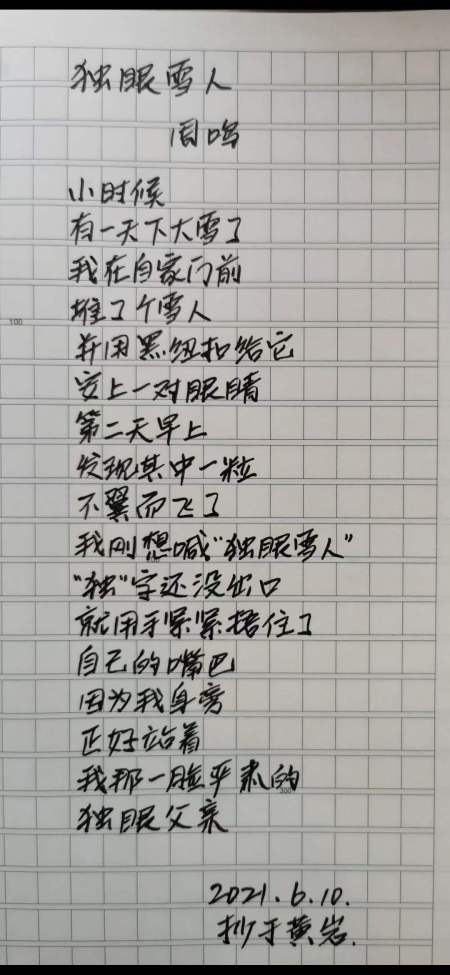 独眼雪人
周鸣
小时候
有一天下大雪了
我在自家门前
堆了个雪人
100
并用黑纽扣给它
安上一对眼睛
第二天早上
发现其中一粒
不翼而飞了
我刚想喊“独眼雪人”
“独”字还没出口
就用手紧紧捂住了
自己的嘴巴
因为我身旁
正好站着
我那一脸平素的
300
独眼父亲
2021.6.10.
抄于黄岩.